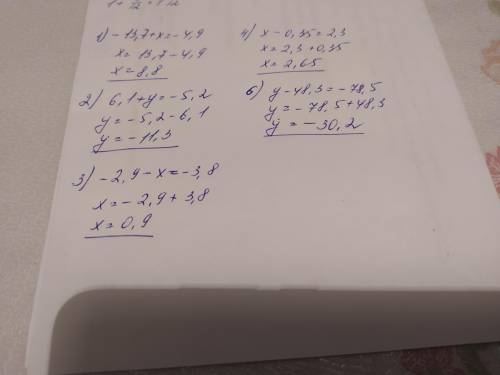 1) -13,7+x=-4,9
x=13,7-4,9
x=8,8
2) 6,1+y=-5,2
y=-5,2-6,1
y=-11,3
3) -2,9-x=-3,8
x=-2,9+3,8
x=0,9
4) x-0,35=2,3
x=2,3+0,35
x=2,65
6) y-48,3=-78,5
y=-78,5+48,3
y=-30,2